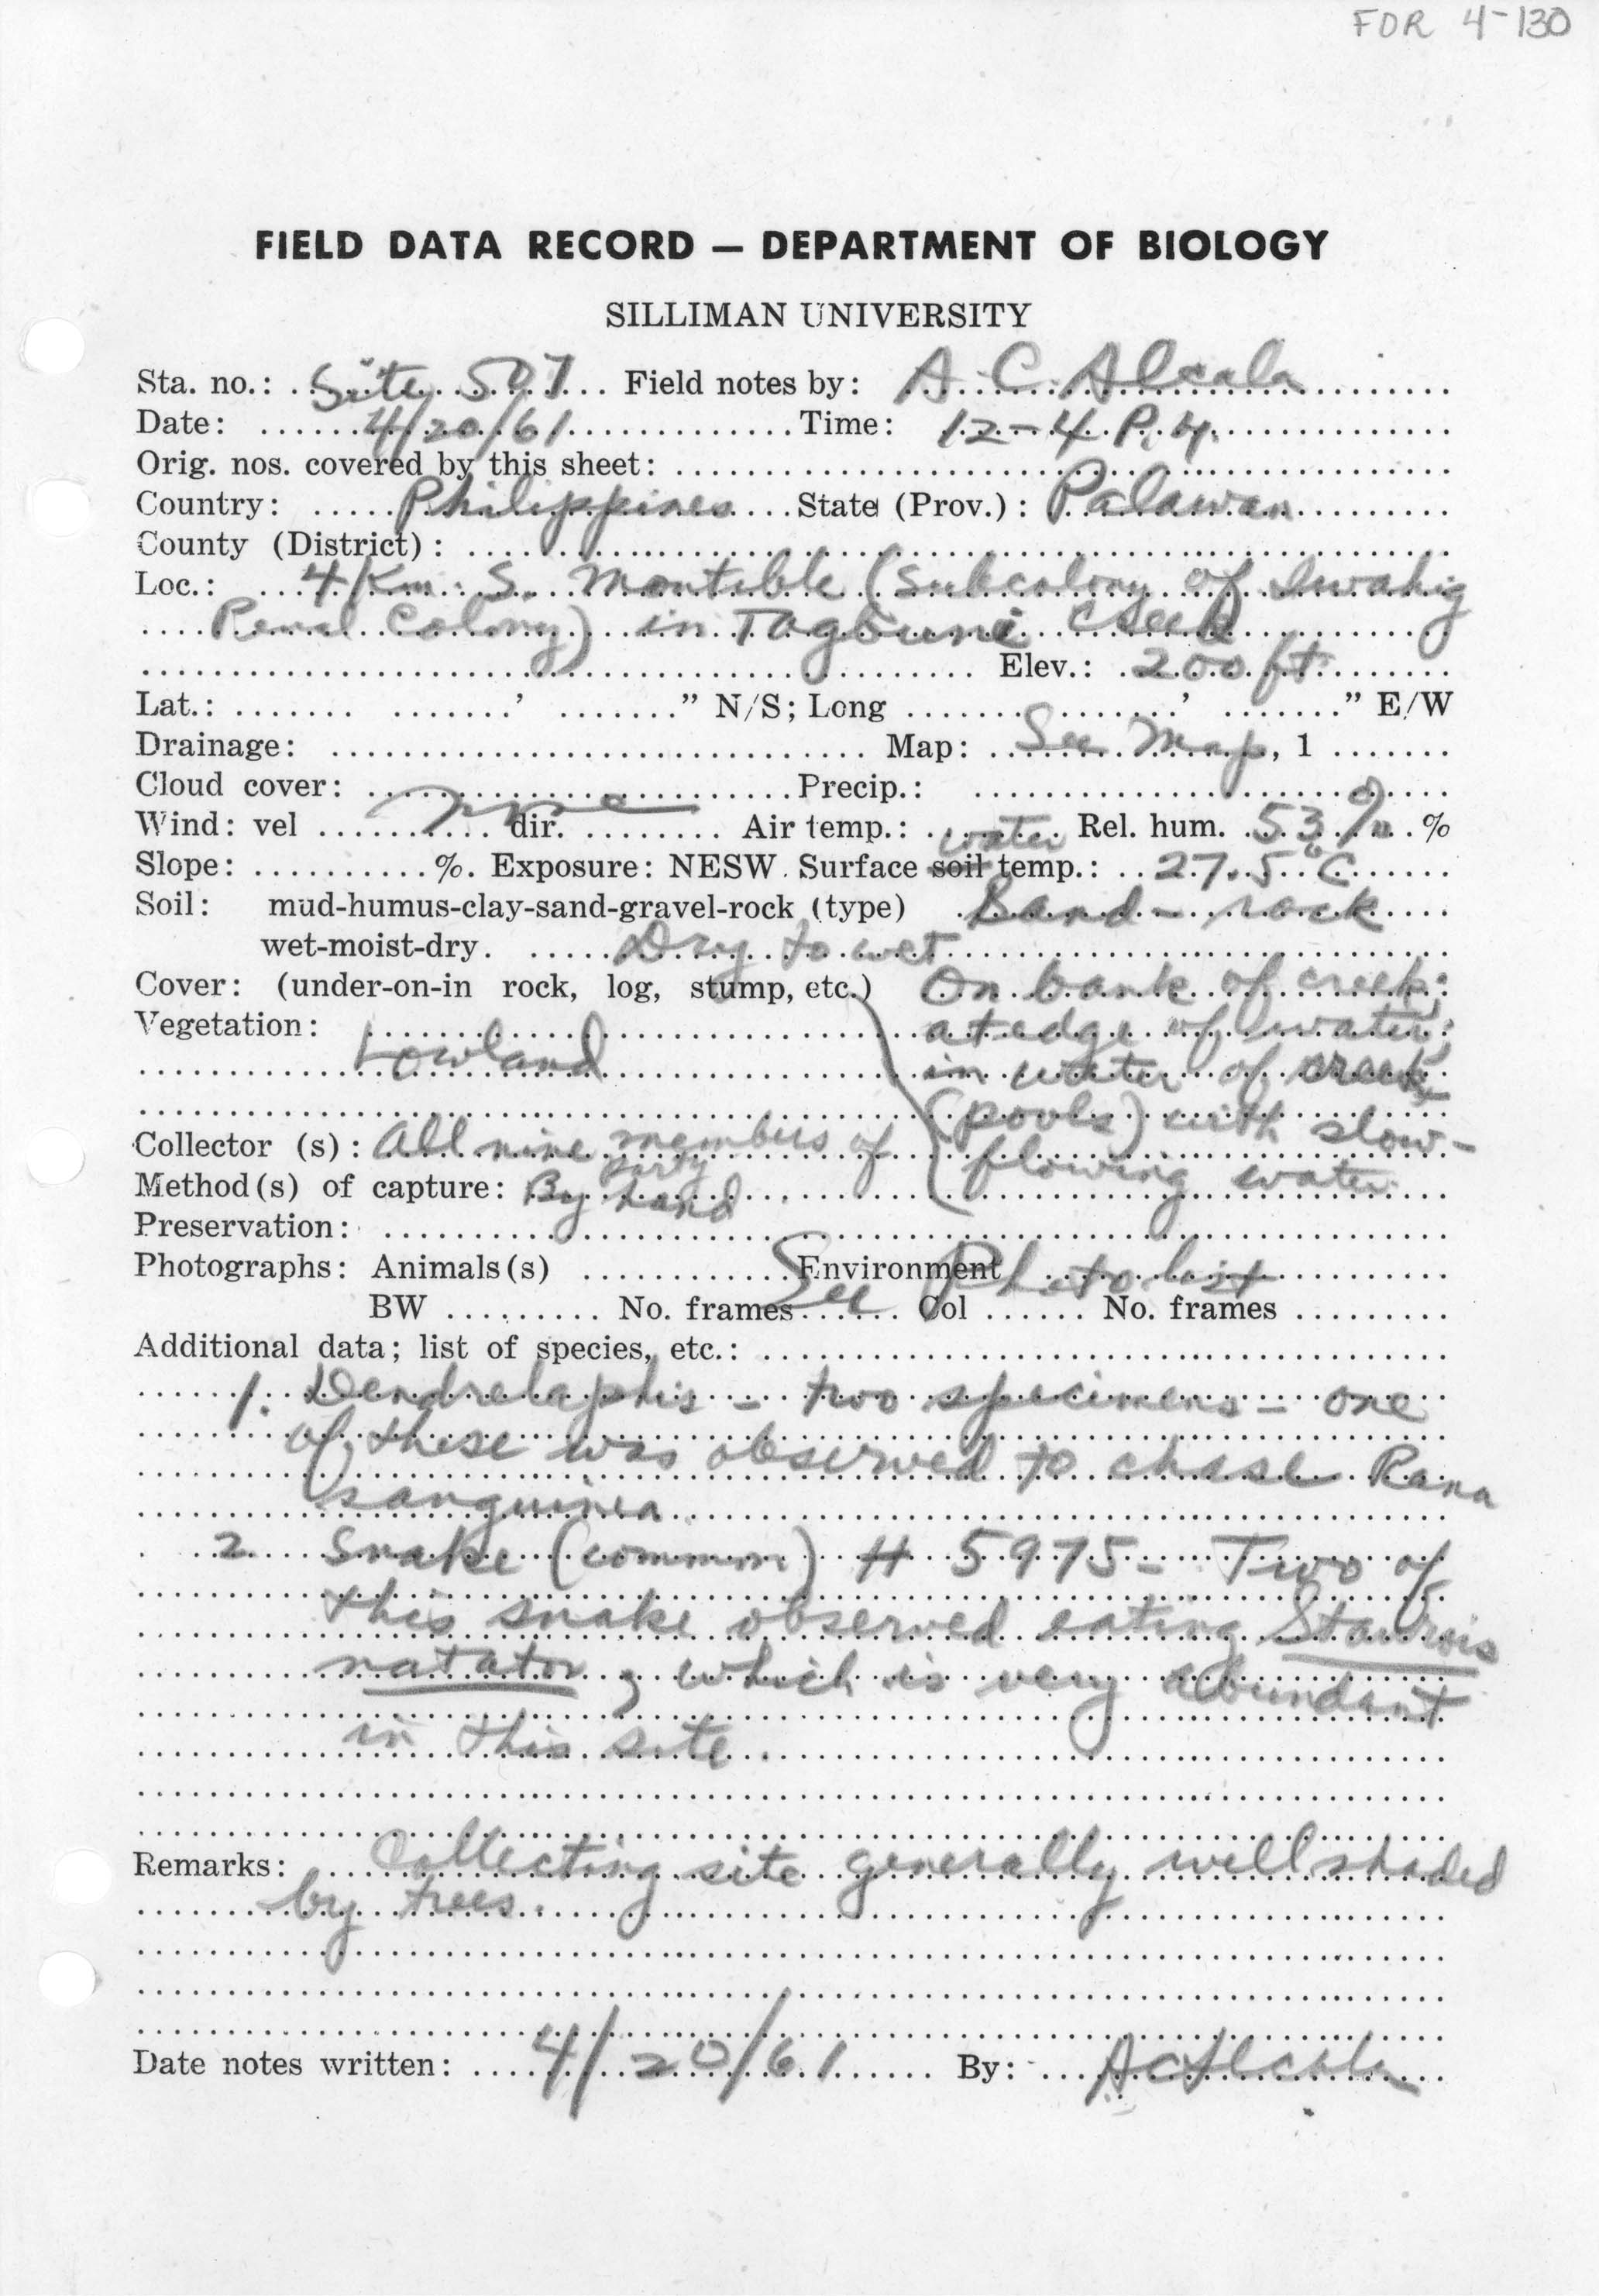 FDR 4-130
FIELD DATA RECORD — DEPARTMENT OF BIOLOGY
SILLIMAN UNIVERSITY
Sta. no.: Site 507 Field notes by: A. C. Alcala
Date: 4/20/61 Time: 12-4 P.M.
Orig. nos. covered by this sheet:
Country: Philippines State (Prov.): Palawan
County (District):
Loc.: 4 Km. S. Montible (subcolony of Iwahig
Penal Colony) in creek
Elev.: 200 ft.
Lat.: ' " N/S; Long ' " E/W
Drainage: Map: See Map, 1
Cloud cover: Precip.:
Wind: vel dir. Air temp.: Rel. hum. 53% %
Slope: %. Exposure: NESW. Surface soil water temp.: 27.5°C
Soil: mud-humus-clay-sand-gravel-rock (type) Sand - rock
wet-moist-dry. Dry to wet
Cover: (under-on-in rock, log, stump, etc.) On bank of creek;
at edge of water;
in water of creek
(pools) with slow-
flowing water.
Vegetation: Lowland
Collector (s): All nine members of party
Method(s) of capture: By hand
Preservation:
Photographs: Animals(s) Environment
See Photo list
BW No. frames Col No. frames
Additional data; list of species, etc.:
1. Dendrelaphis - two specimens - one
of these was observed to chase Rana
sanguinea.
2. Snake (common) # 5975 - Two of
this snake observed eating Staurois
natator, which is very abundant
in this site.
Remarks: Collecting site generally well shaded
by trees.
Date notes written: 4/20/61 By: ACAlcala